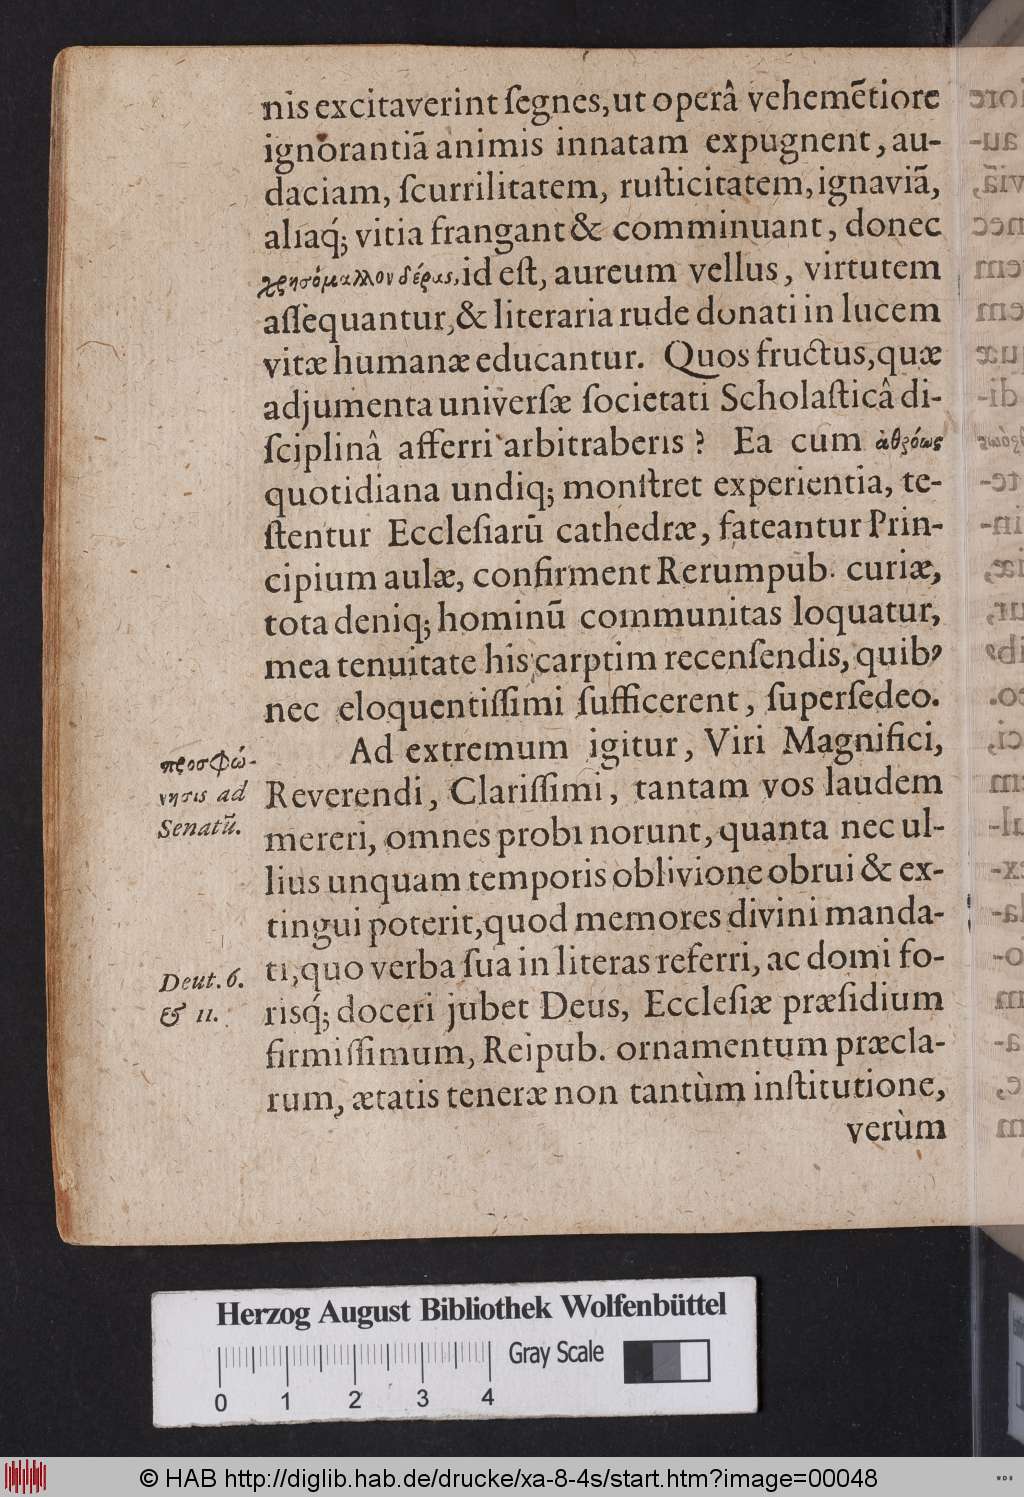 nis excitaverint ſegnes, ut operâ vehemẽtiore
ignorantiã animis innatam expugnent, au-
daciam, ſcurrilitatem, ruſticitatem, ignaviã,
aliaq́; vitia frangant & comminuant, donec
χρησόμαλλον δέρας, id eſt, aureum vellus, virtutem
aſſequantur, & literaria rude donati in lucem
vitæ humanæ educantur. Quos fructus, quæ
adjumenta univerſæ ſocietati Scholaſticâ di-
ſciplinâ afferri arbitraberis? Ea cum ἀθρόως
quotidiana undiq; monſtret experientia, te-
ſtentur Eccleſiarũ cathedræ, fateantur Prin-
cipium aulæ, confirment Rerumpub. curiæ,
tota deniq; hominũ communitas loquatur,
mea tenuitate his carptim recenſendis, quibꝰ
nec eloquentiſſimi ſufficerent, ſuperſedeo.
προσφώ-
νησις ad
Senatũ.
Ad extremum igitur, Viri Magnifici,
Reverendi, Clariſſimi, tantam vos laudem
mereri, omnes probi norunt, quanta nec ul-
lius unquam temporis oblivione obrui & ex-
tingui poterit, quod memores divini manda-
Deut. 6.
& 11.
ti, quo verba ſua in literas referri, ac domi fo-
risq́; doceri jubet Deus, Eccleſiæ præſidium
firmiſſimum, Reipub. ornamentum præcla-
rum, ætatis teneræ non tantùm inſtitutione,
verùm
Herzog August Bibliothek Wolfenbüttel
Gray Scale
0 1 2 3 4
© HAB http://diglib.hab.de/drucke/xa-8-4s/start.htm?image=00048